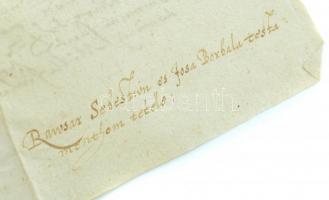 Rawsar Sebestien es Josa Borbala testa
mentom tetele